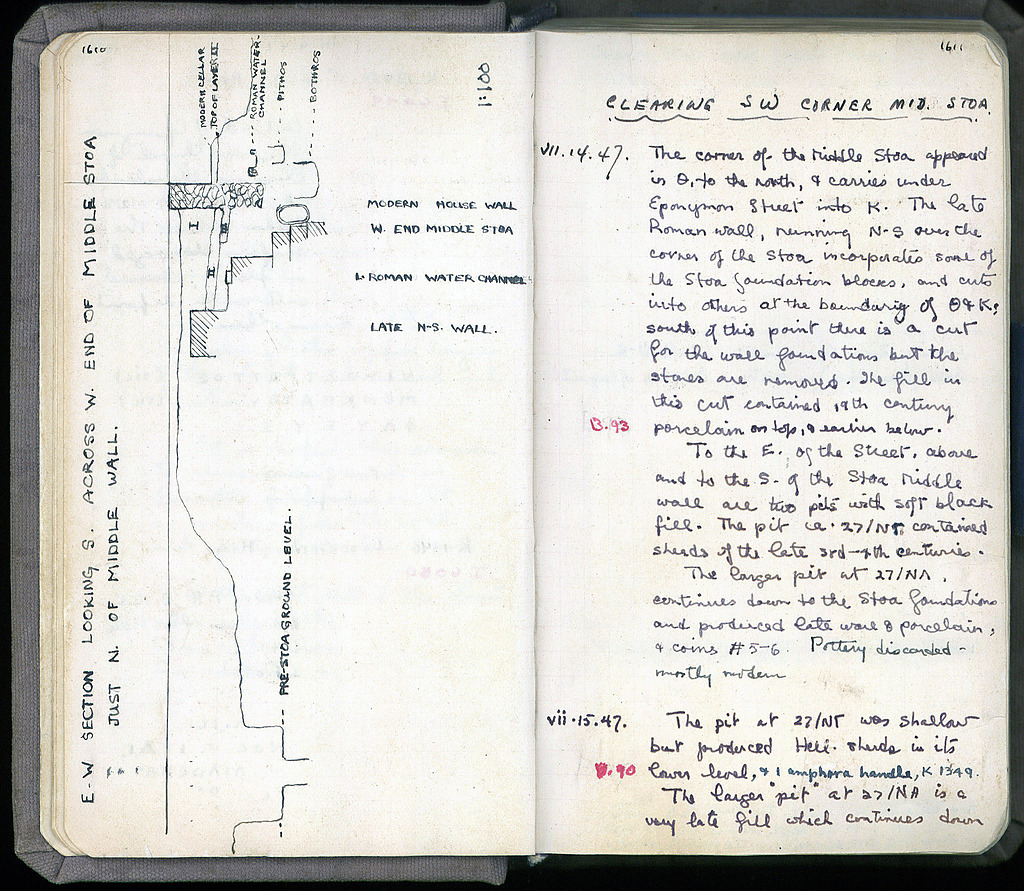 1610
E-W SECTION LOOKING S. ACROSS W. END OF MIDDLE STOA
JUST N. OF MIDDLE WALL.
MODERN CELLAR
TOP OF LAYER II
ROMAN WATER
CHANNEL
PITHOS
BOTHROS
1:100
I
II
III
MODERN HOUSE WALL
W. END MIDDLE STOA
L. ROMAN WATER CHANNEL
LATE N-S. WALL.
PRE-STOA GROUND LEVEL.
1611
CLEARING SW CORNER MID. STOA
vii.14.47. The corner of the Middle Stoa appeared
in Θ, to the north, & carries under
Eponymon Street into K. The late
Roman wall, running N-S over the
corner of the Stoa incorporates some of
the Stoa foundation blocks, and cuts
into others at the boundary of Θ & K;
south of this point there is a cut
for the wall foundations but the
stones are removed. The fill in
this cut contained 19th century
B.93 porcelain on top, & earlier below.
To the E. of the Street, above
and to the S. of the Stoa Middle
wall are two pits with soft black
fill. The pit ca. 27/ΝΓ contained
sherds of the late 3rd-4th centuries.
The larger pit at 27/ΝΑ,
continues down to the Stoa foundations
and produced late ware & porcelain,
& coins #5-6. Pottery discarded -
mostly modern
vii.15.47. The pit at 27/ΝΓ was shallow
but produced Hell. sherds in its
B.90 lower level, & 1 amphora handle, K 1349.
The larger "pit" at 27/ΝΑ is a
very late fill which continues down